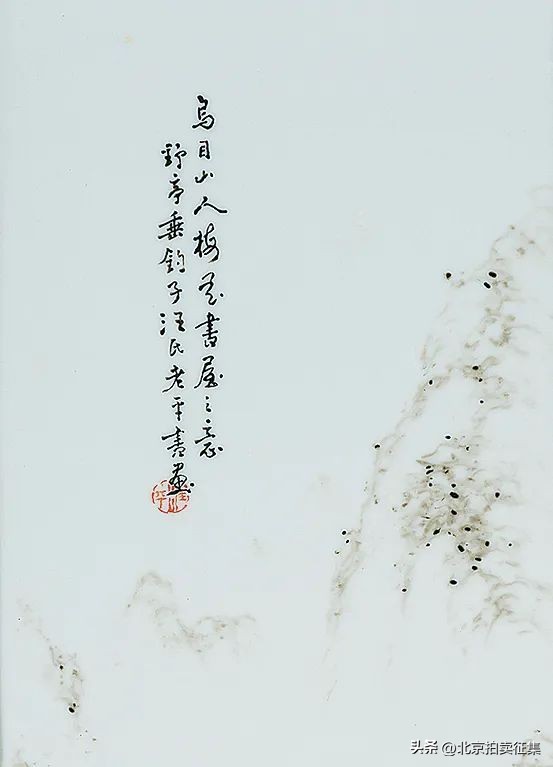 烏目山人梅花書屋之意
野亭垂釣子汪氏老平書畫
头条 @北京拍卖征集